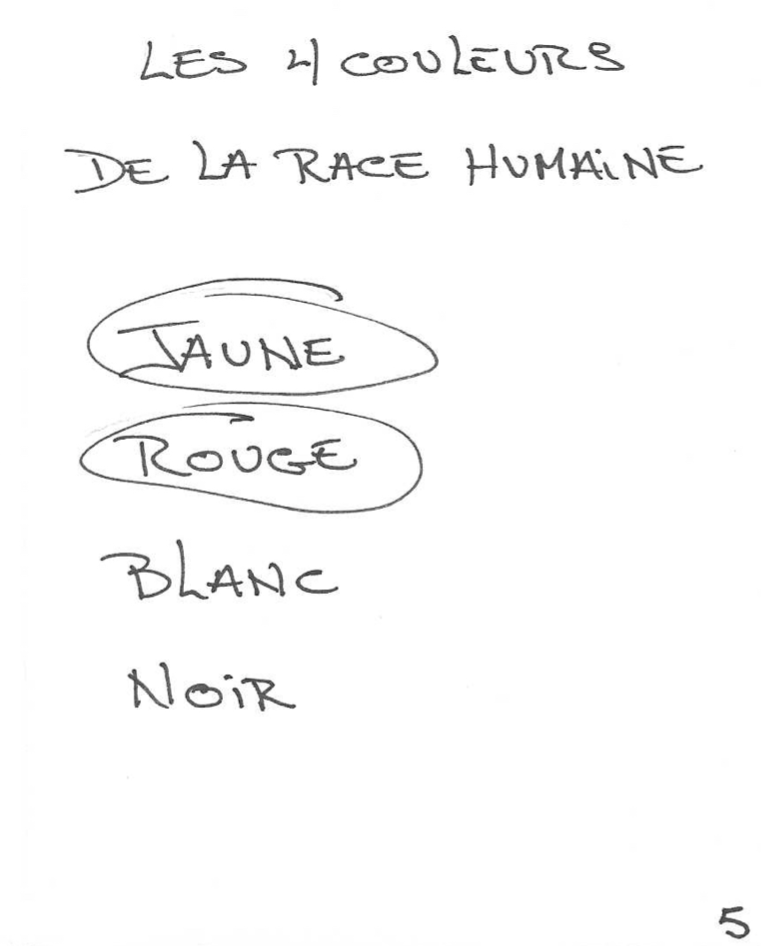 LES 4 COULEURS
DE LA RACE HUMAINE
JAUNE
ROUGE
BLANC
NOIR
5